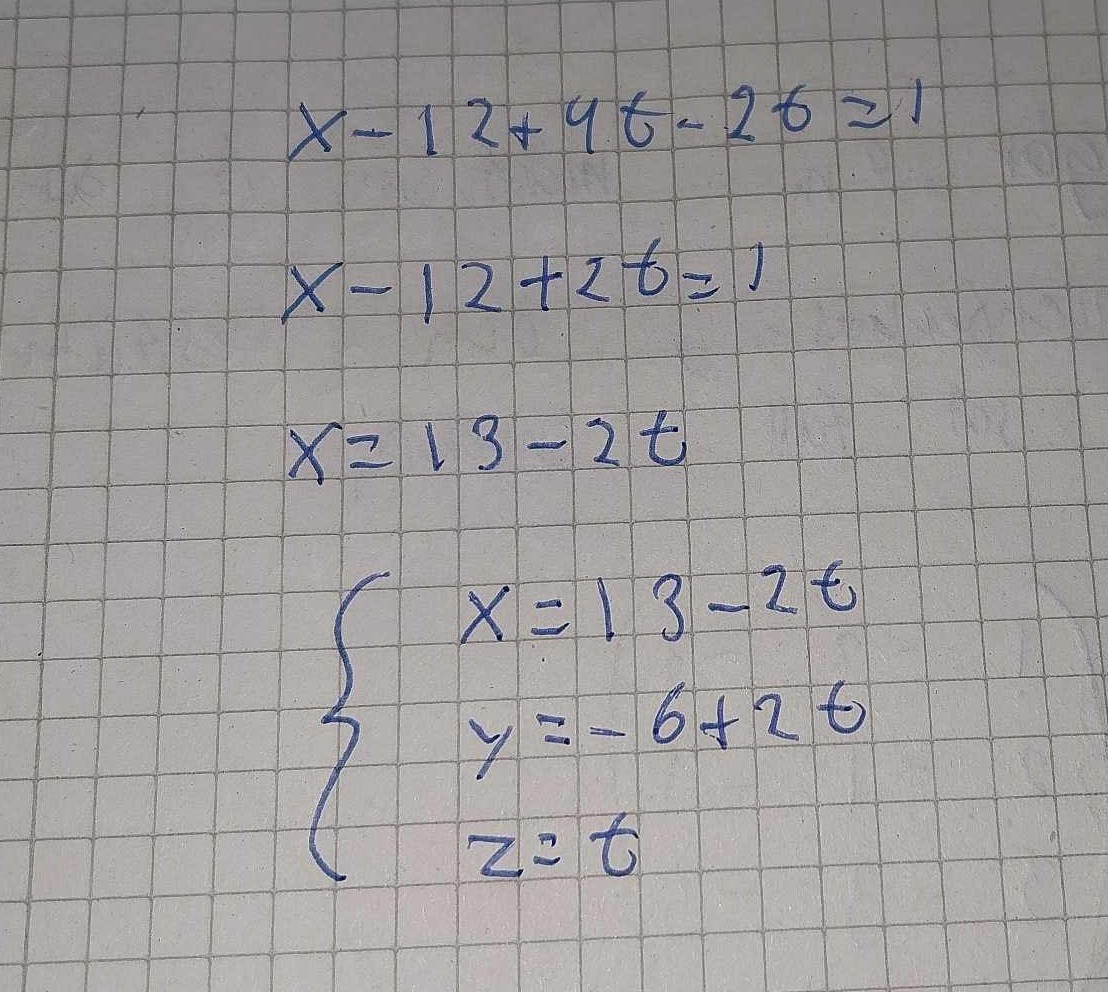 x-12+4t-2t=1
x-12+2t=1
x=13-2t
x=13-2t
y=-6+2t
z=t